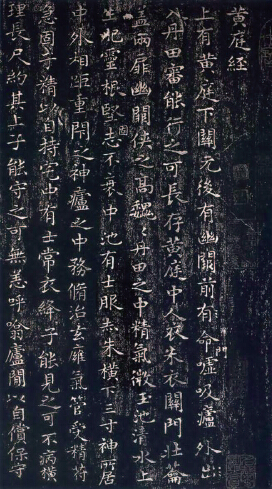 黄庭經
上有黄庭下關元後有幽闕前有命噓吸廬外出
入丹田審能行之可長存黄庭中人衣朱衣關門壯蘥
蓋兩扉幽闕俠之高巍巍丹田之中精氣微玉池清水上
生肥靈根堅志不衰中池有士服赤朱橫下三寸神所居
中外相距重閇之神廬之中務脩治玄廱氣管受精符
急固子精以自持宅中有士常衣絳子能見之可不病橫
理長尺約其上子能守之可無恙呼噏廬閒以自償保守